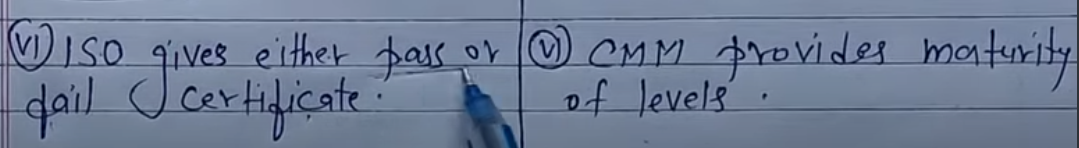 (VI) ISO gives either pass or
fail certificate.
(V) CMM provides maturity
of levels.